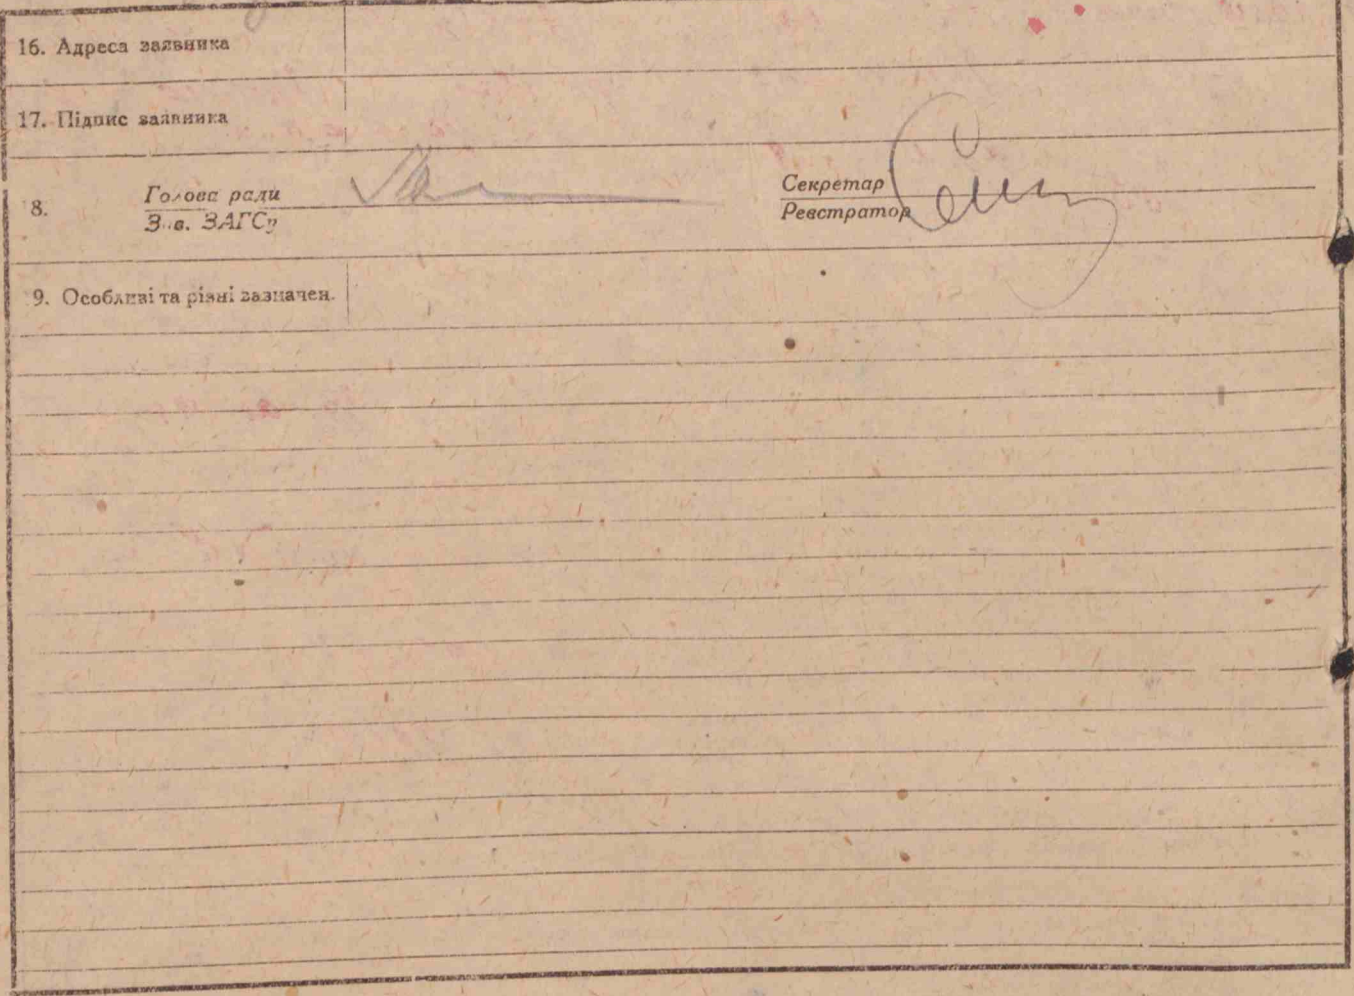 16. Адреса заявника
17. Підпис заявника
8. Голова ради Секретар
Зав. ЗАГСу Реєстратор
9. Особливі та різні зазначен.